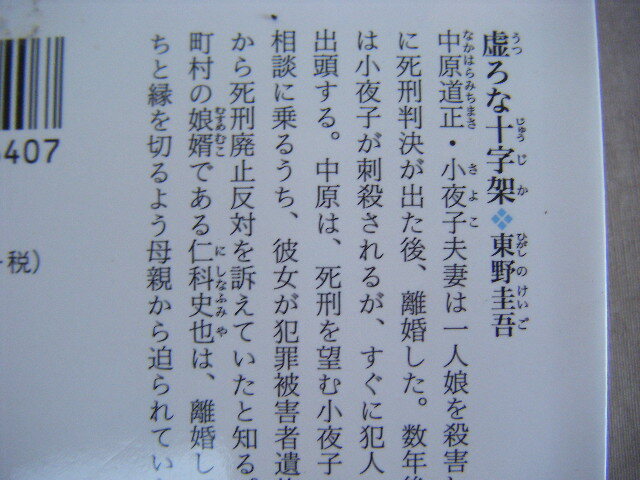 虚ろな十字架❖東野圭吾
中原道正・小夜子夫妻は一人娘を殺害し
に死刑判決が出た後、離婚した。数年後
は小夜子が刺殺されるが、すぐに犯人
出頭する。中原は、死刑を望む小夜子
相談に乗るうち、彼女が犯罪被害者遺族
から死刑廃止反対を訴えていたと知る。
町村の娘婿である仁科史也は、離婚し
ちと縁を切るよう母親から迫られてい
税)
407